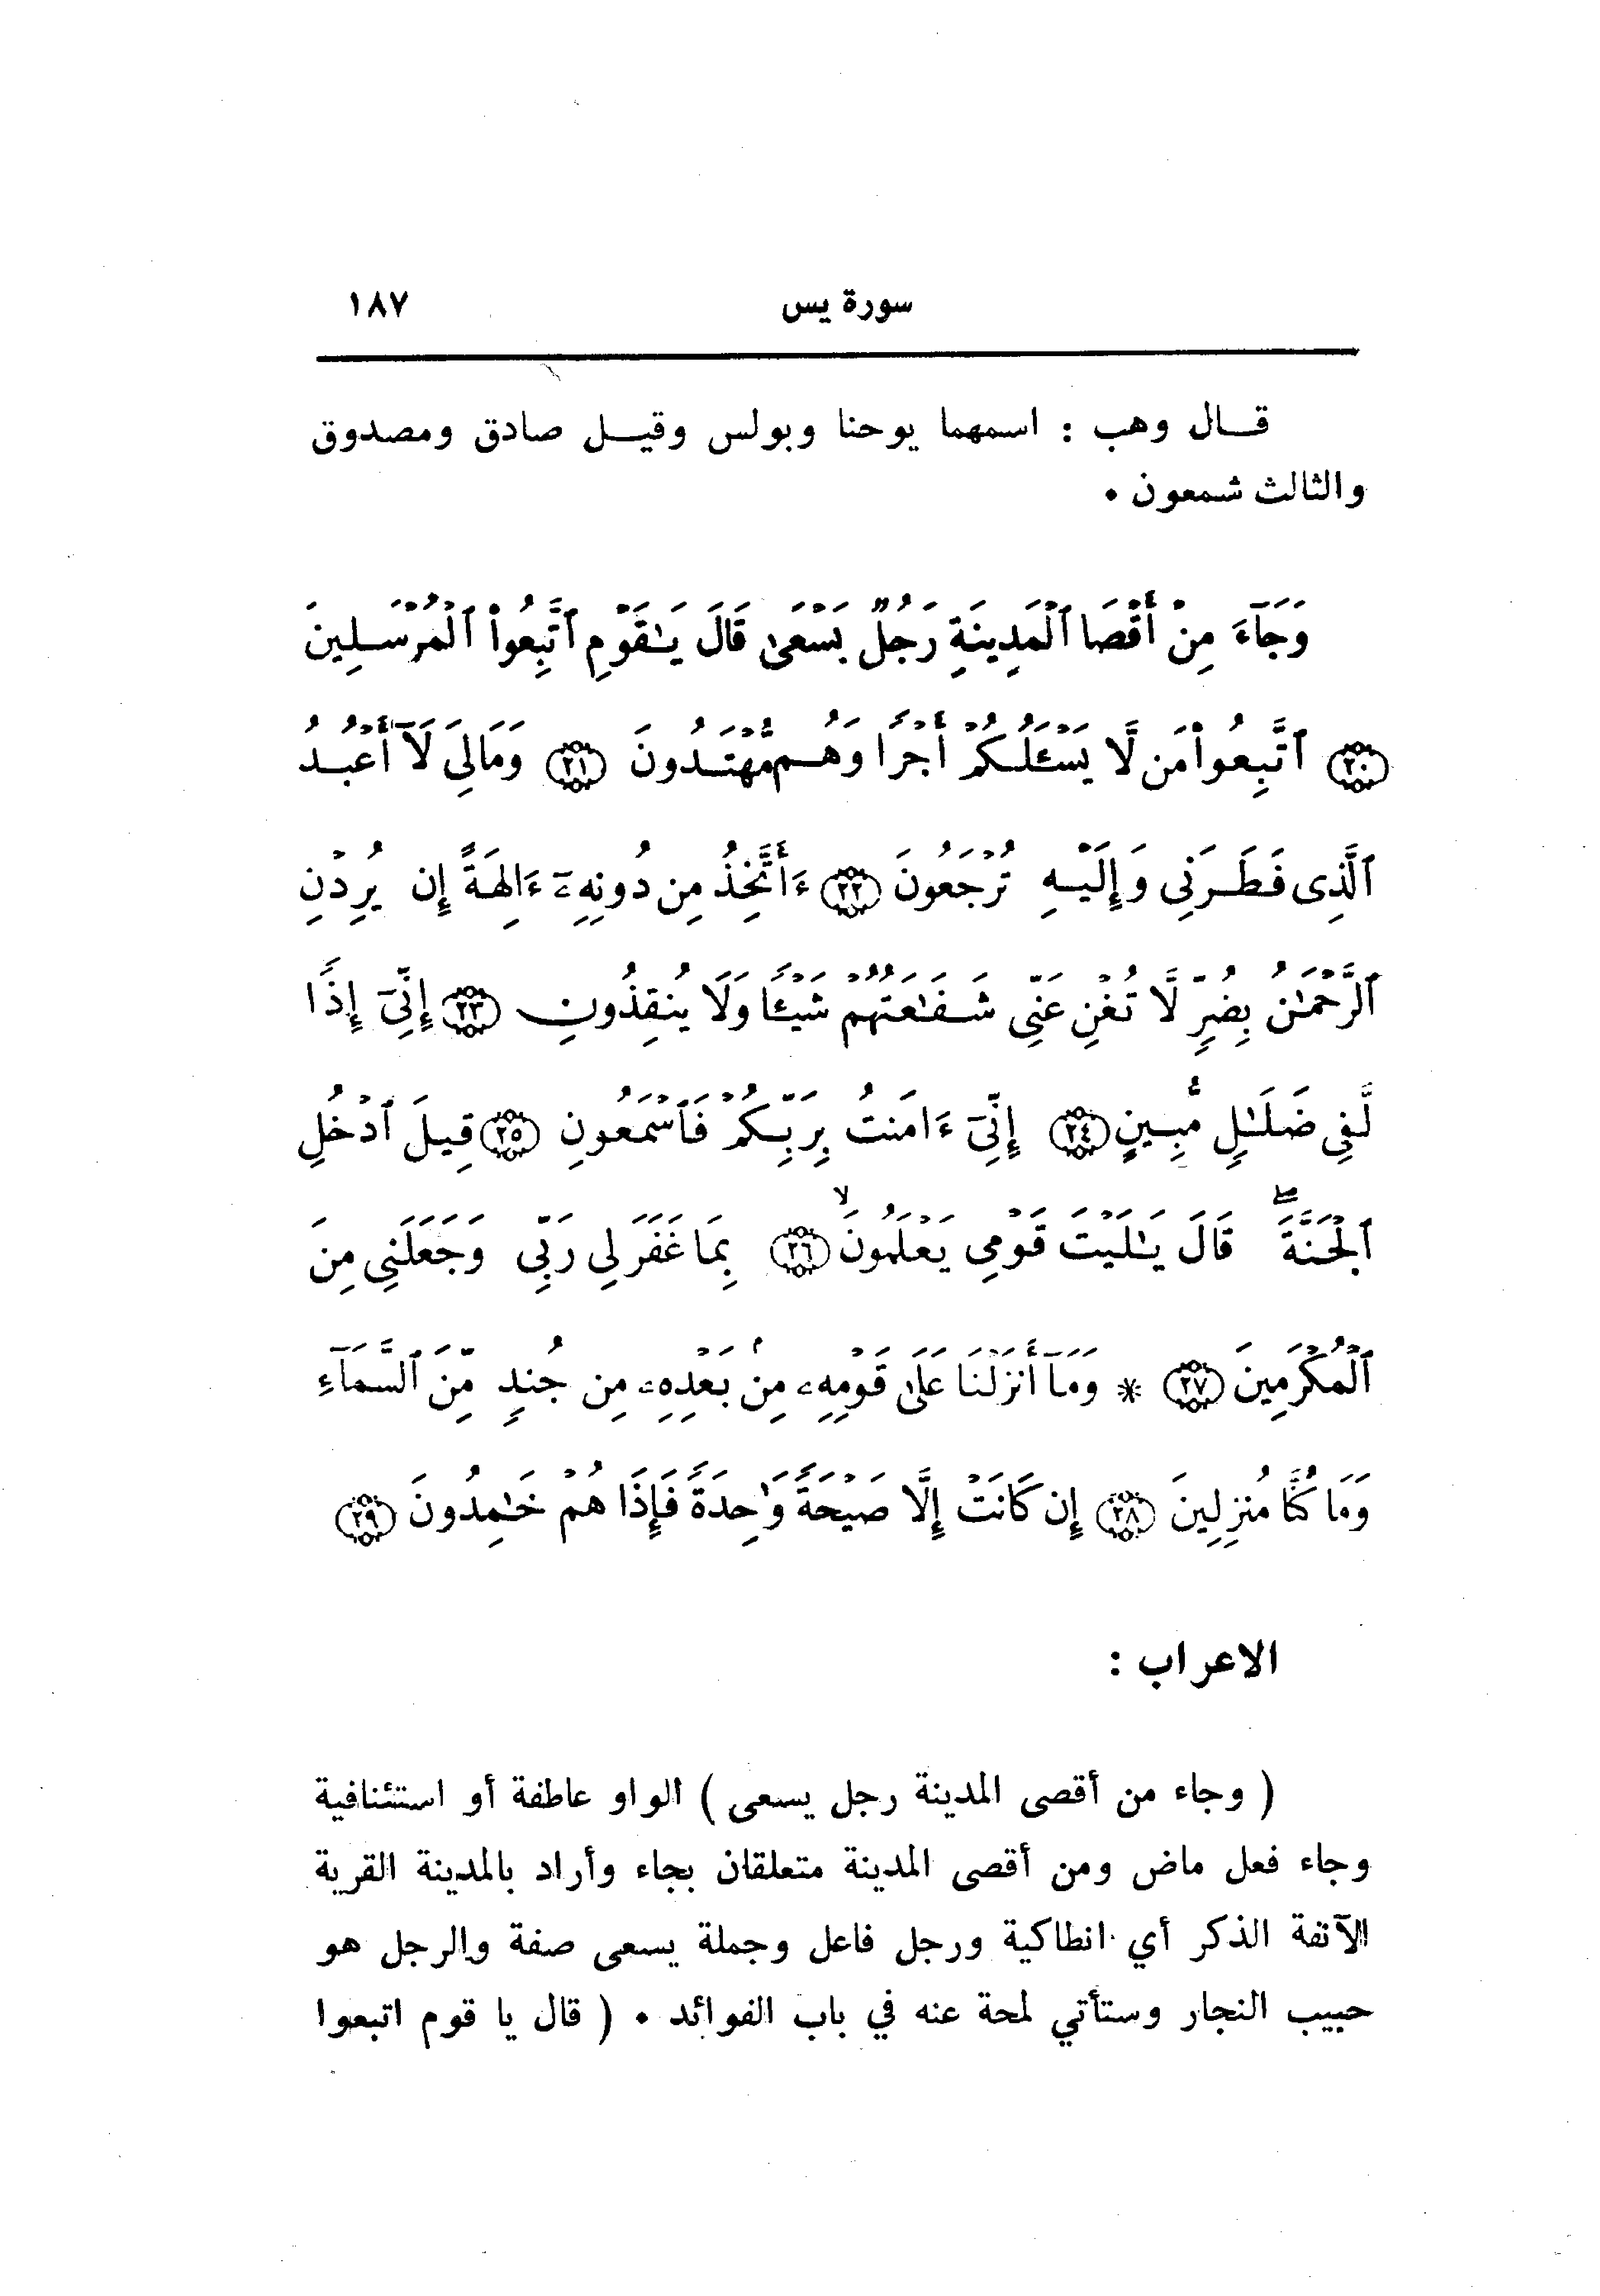 سورة يس ١٨٧
قال وهب : اسمهما يوحنا وبولس وقيل صادق ومصدوق
والثالث شمعون ٠
وَجَآءَ مِنْ أَقْصَا ٱلْمَدِينَةِ رَجُلٌ يَسْعَىٰ قَالَ يَـٰقَوْمِ ٱتَّبِعُوا۟ ٱلْمُرْسَلِينَ
﴿٢٠﴾ ٱتَّبِعُوا۟ مَن لَّا يَسْـَٔلُكُمْ أَجْرًا وَهُم مُّهْتَدُونَ ﴿٢١﴾ وَمَالِىَ لَآ أَعْبُدُ
ٱلَّذِى فَطَرَنِى وَإِلَيْهِ تُرْجَعُونَ ﴿٢٢﴾ ءَأَتَّخِذُ مِن دُونِهِۦٓ ءَالِهَةً إِن يُرِدْنِ
ٱلرَّحْمَـٰنُ بِضُرٍّ لَّا تُغْنِ عَنِّى شَفَـٰعَتُهُمْ شَيْـًٔا وَلَا يُنقِذُونِ ﴿٢٣﴾ إِنِّىٓ إِذًا
لَّفِى ضَلَـٰلٍ مُّبِينٍ ﴿٢٤﴾ إِنِّىٓ ءَامَنتُ بِرَبِّكُمْ فَٱسْمَعُونِ ﴿٢٥﴾ قِيلَ ٱدْخُلِ
ٱلْجَنَّةَ ۖ قَالَ يَـٰلَيْتَ قَوْمِى يَعْلَمُونَ ۙ ﴿٢٦﴾ بِمَا غَفَرَ لِى رَبِّى وَجَعَلَنِى مِنَ
ٱلْمُكْرَمِينَ ﴿٢٧﴾ * وَمَآ أَنزَلْنَا عَلَىٰ قَوْمِهِۦ مِنۢ بَعْدِهِۦ مِن جُندٍ مِّنَ ٱلسَّمَآءِ
وَمَا كُنَّا مُنزِلِينَ ﴿٢٨﴾ إِن كَانَتْ إِلَّا صَيْحَةً وَٰحِدَةً فَإِذَا هُمْ خَـٰمِدُونَ ﴿٢٩﴾
الاعراب :
( وجاء من أقصى المدينة رجل يسعى ) الواو عاطفة أو استئنافية
وجاء فعل ماض ومن أقصى المدينة متعلقان بجاء وأراد بالمدينة القرية
الآنفة الذكر أي انطاكية ورجل فاعل وجملة يسعى صفة والرجل هو
حبيب النجار وستأتي لمحة عنه في باب الفوائد ٠ ( قال يا قوم اتبعوا